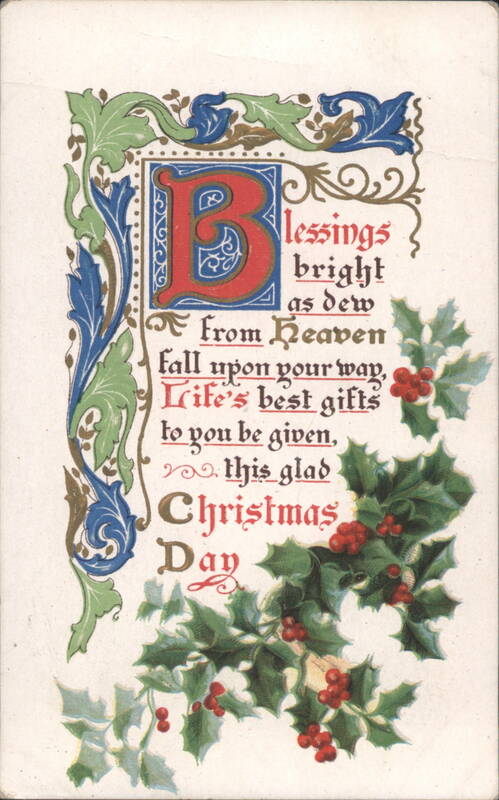 Blessings
bright
as dew
from Heaven
fall upon your way,
Life's best gifts
to you be given,
this glad
Christmas
Day